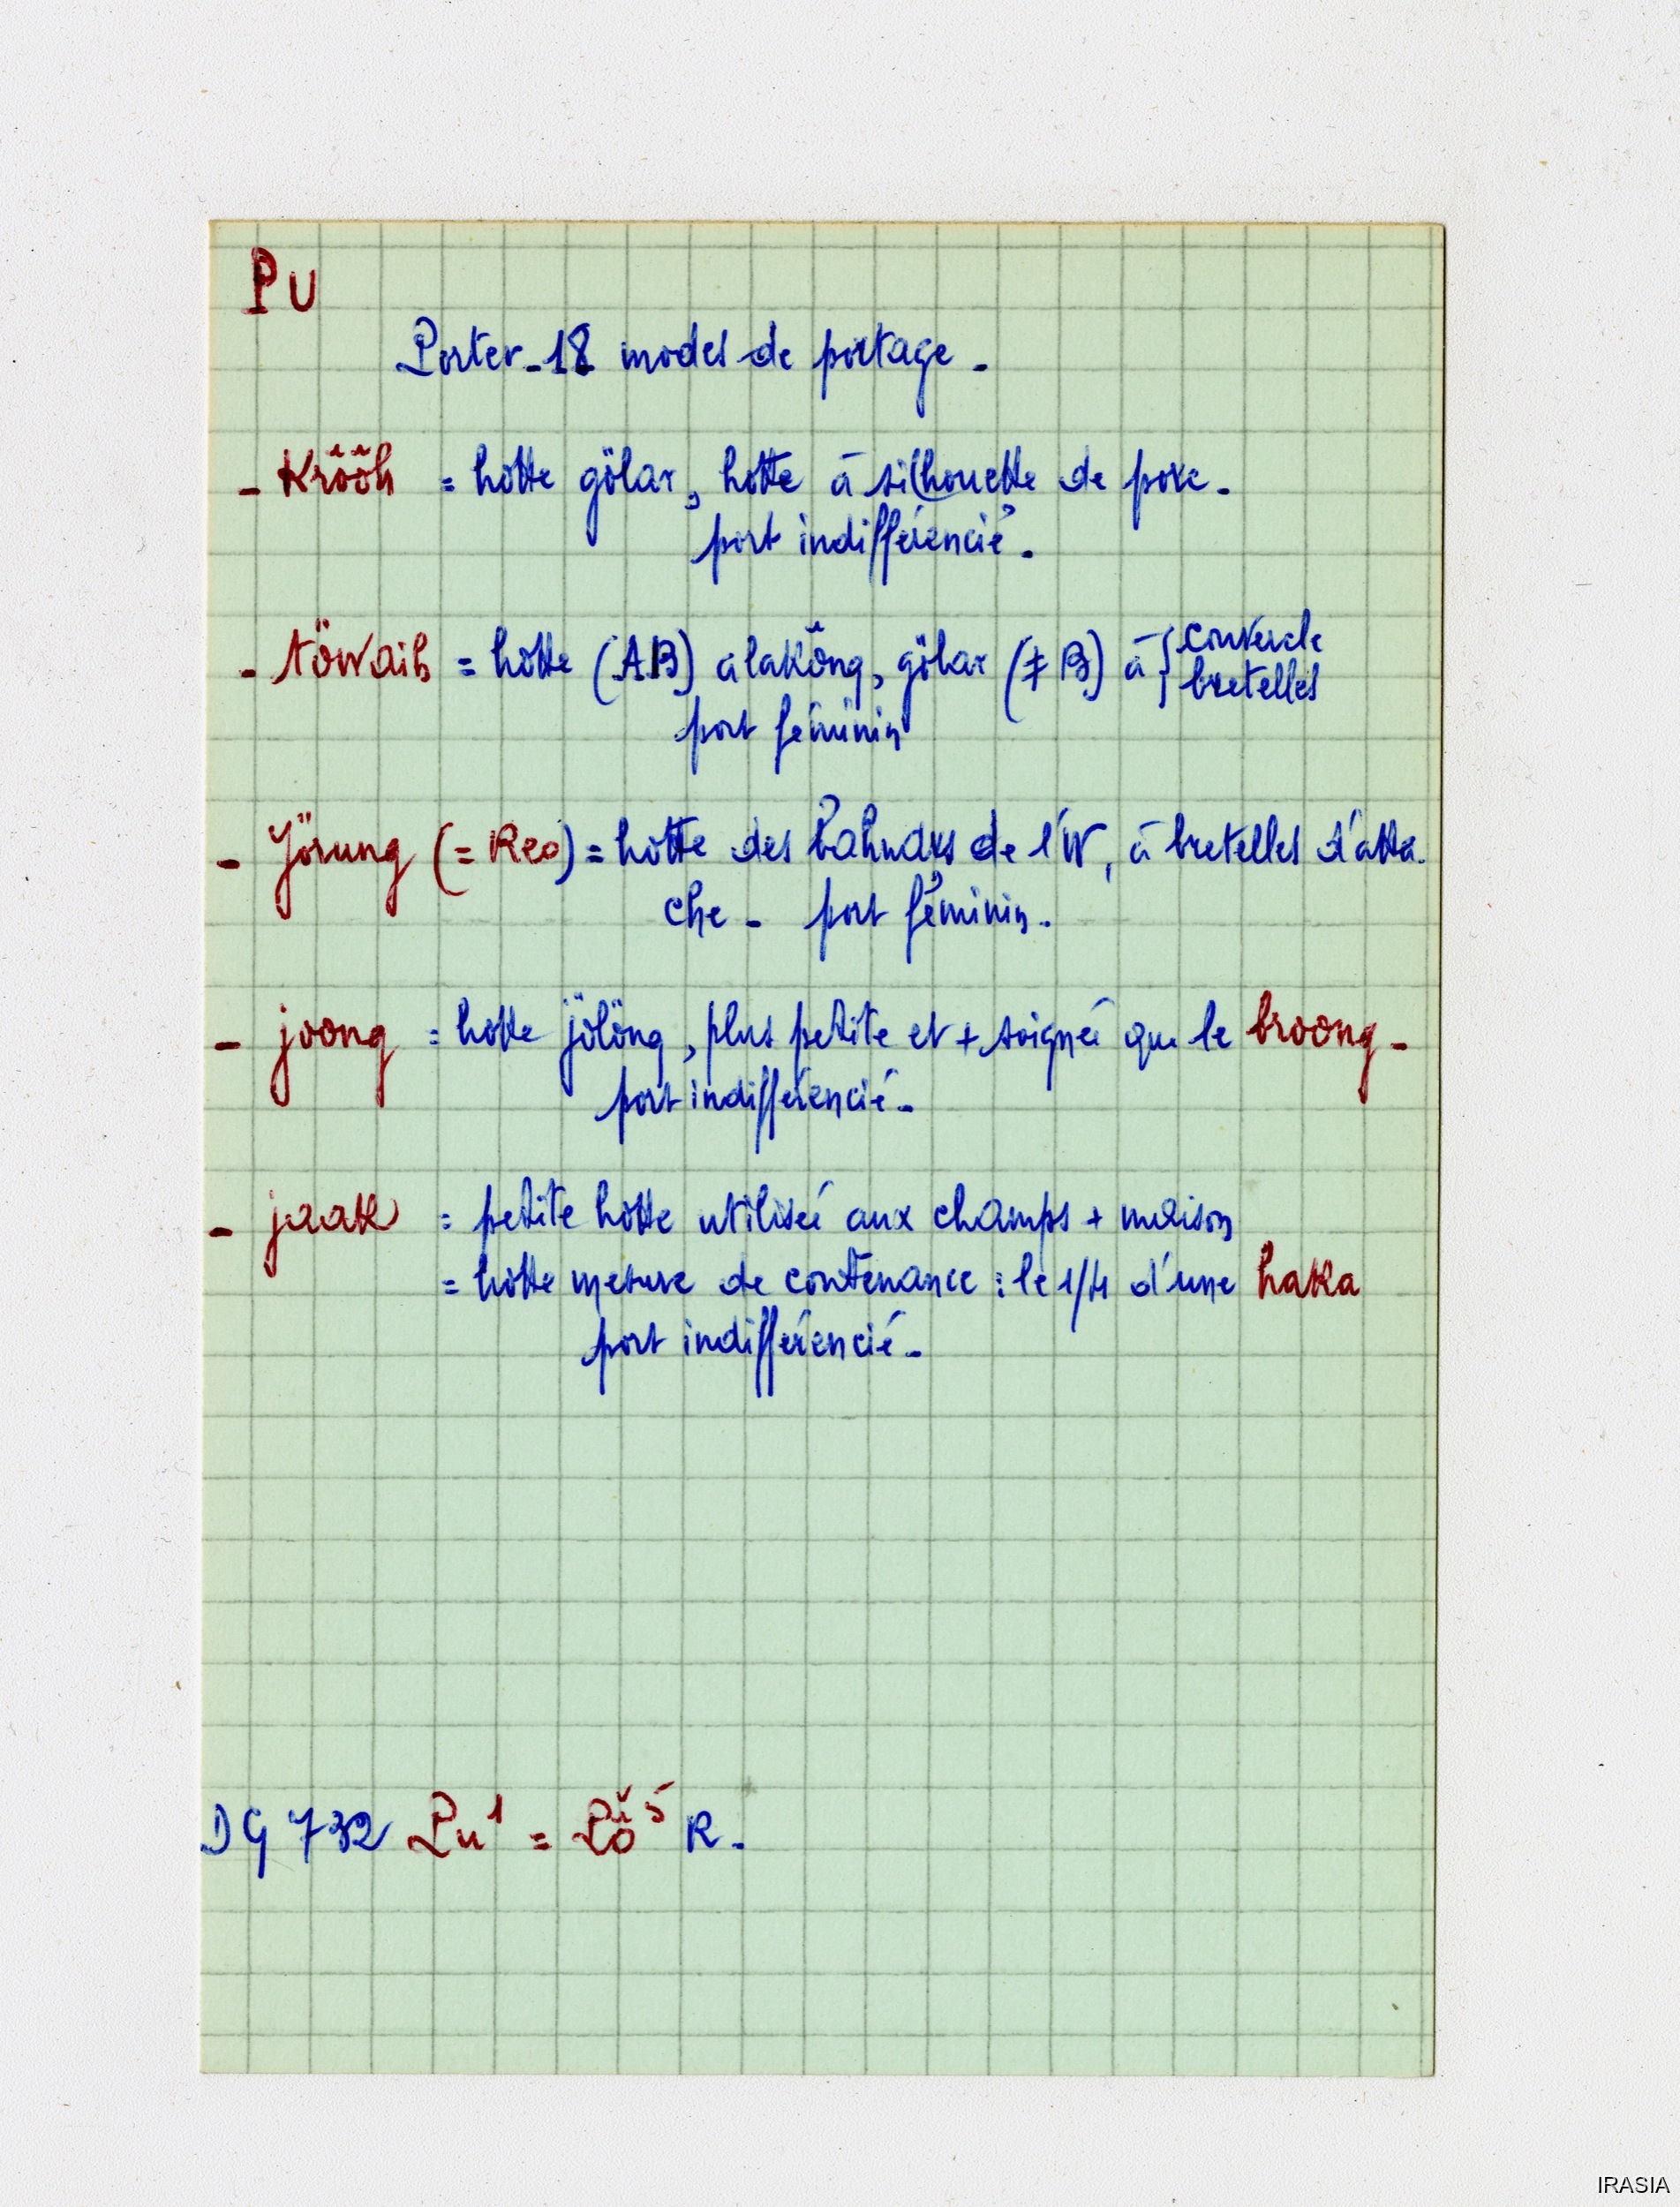 PU
Porter - 18 modes de portage -
- Krôôh = hotte gölar, hotte à silhouette de porc.
port indifférencié.
- töwaih = hotte (AB) alakông, gölar (≠ B) à { couvercle
bretelles
port féminin
- Yörung (= Reo) = hotte des bahnars de l'W, à bretelles d'atta.
che - port féminin.
- joong = hotte jölöng, plus petite et + soignée que le broong -
port indifférencié -
- jaak = petite hotte utilisée aux champs + maison
= hotte mesure de contenance : le 1/4 d'une haka
port indifférencié -
DG 732 Pu¹ = R.
IRASIA